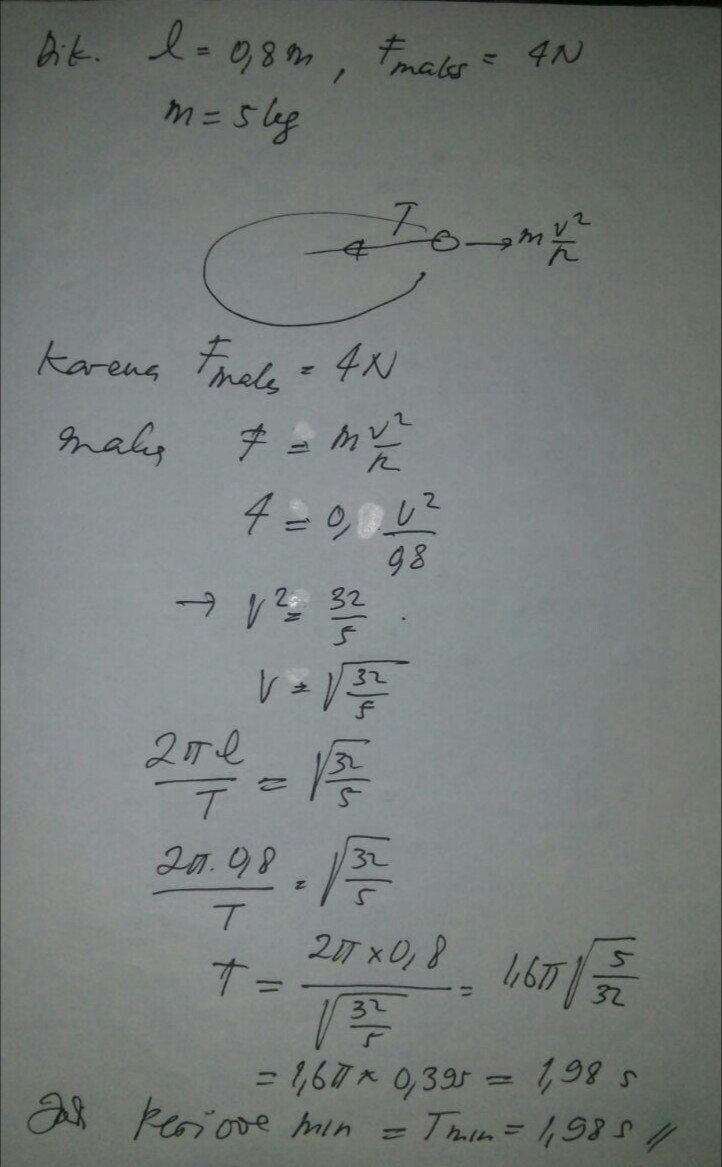 Dik. l = 0,8 m, Fmaks = 4N
m = 5 kg
T m v²/r
Karena Fmaks = 4N
maka F = m v²/r
4 = 0, v²/0,8
→ v² = 32/5 .
V = √32/5
2πl/T = √32/5
2π.0,8/T = √32/5
T = 2π×0,8/√32/5 = 1,6π√5/32
= 1,6π × 0,395 = 1,98 s
Jdi Periode min = Tmin = 1,98 s //